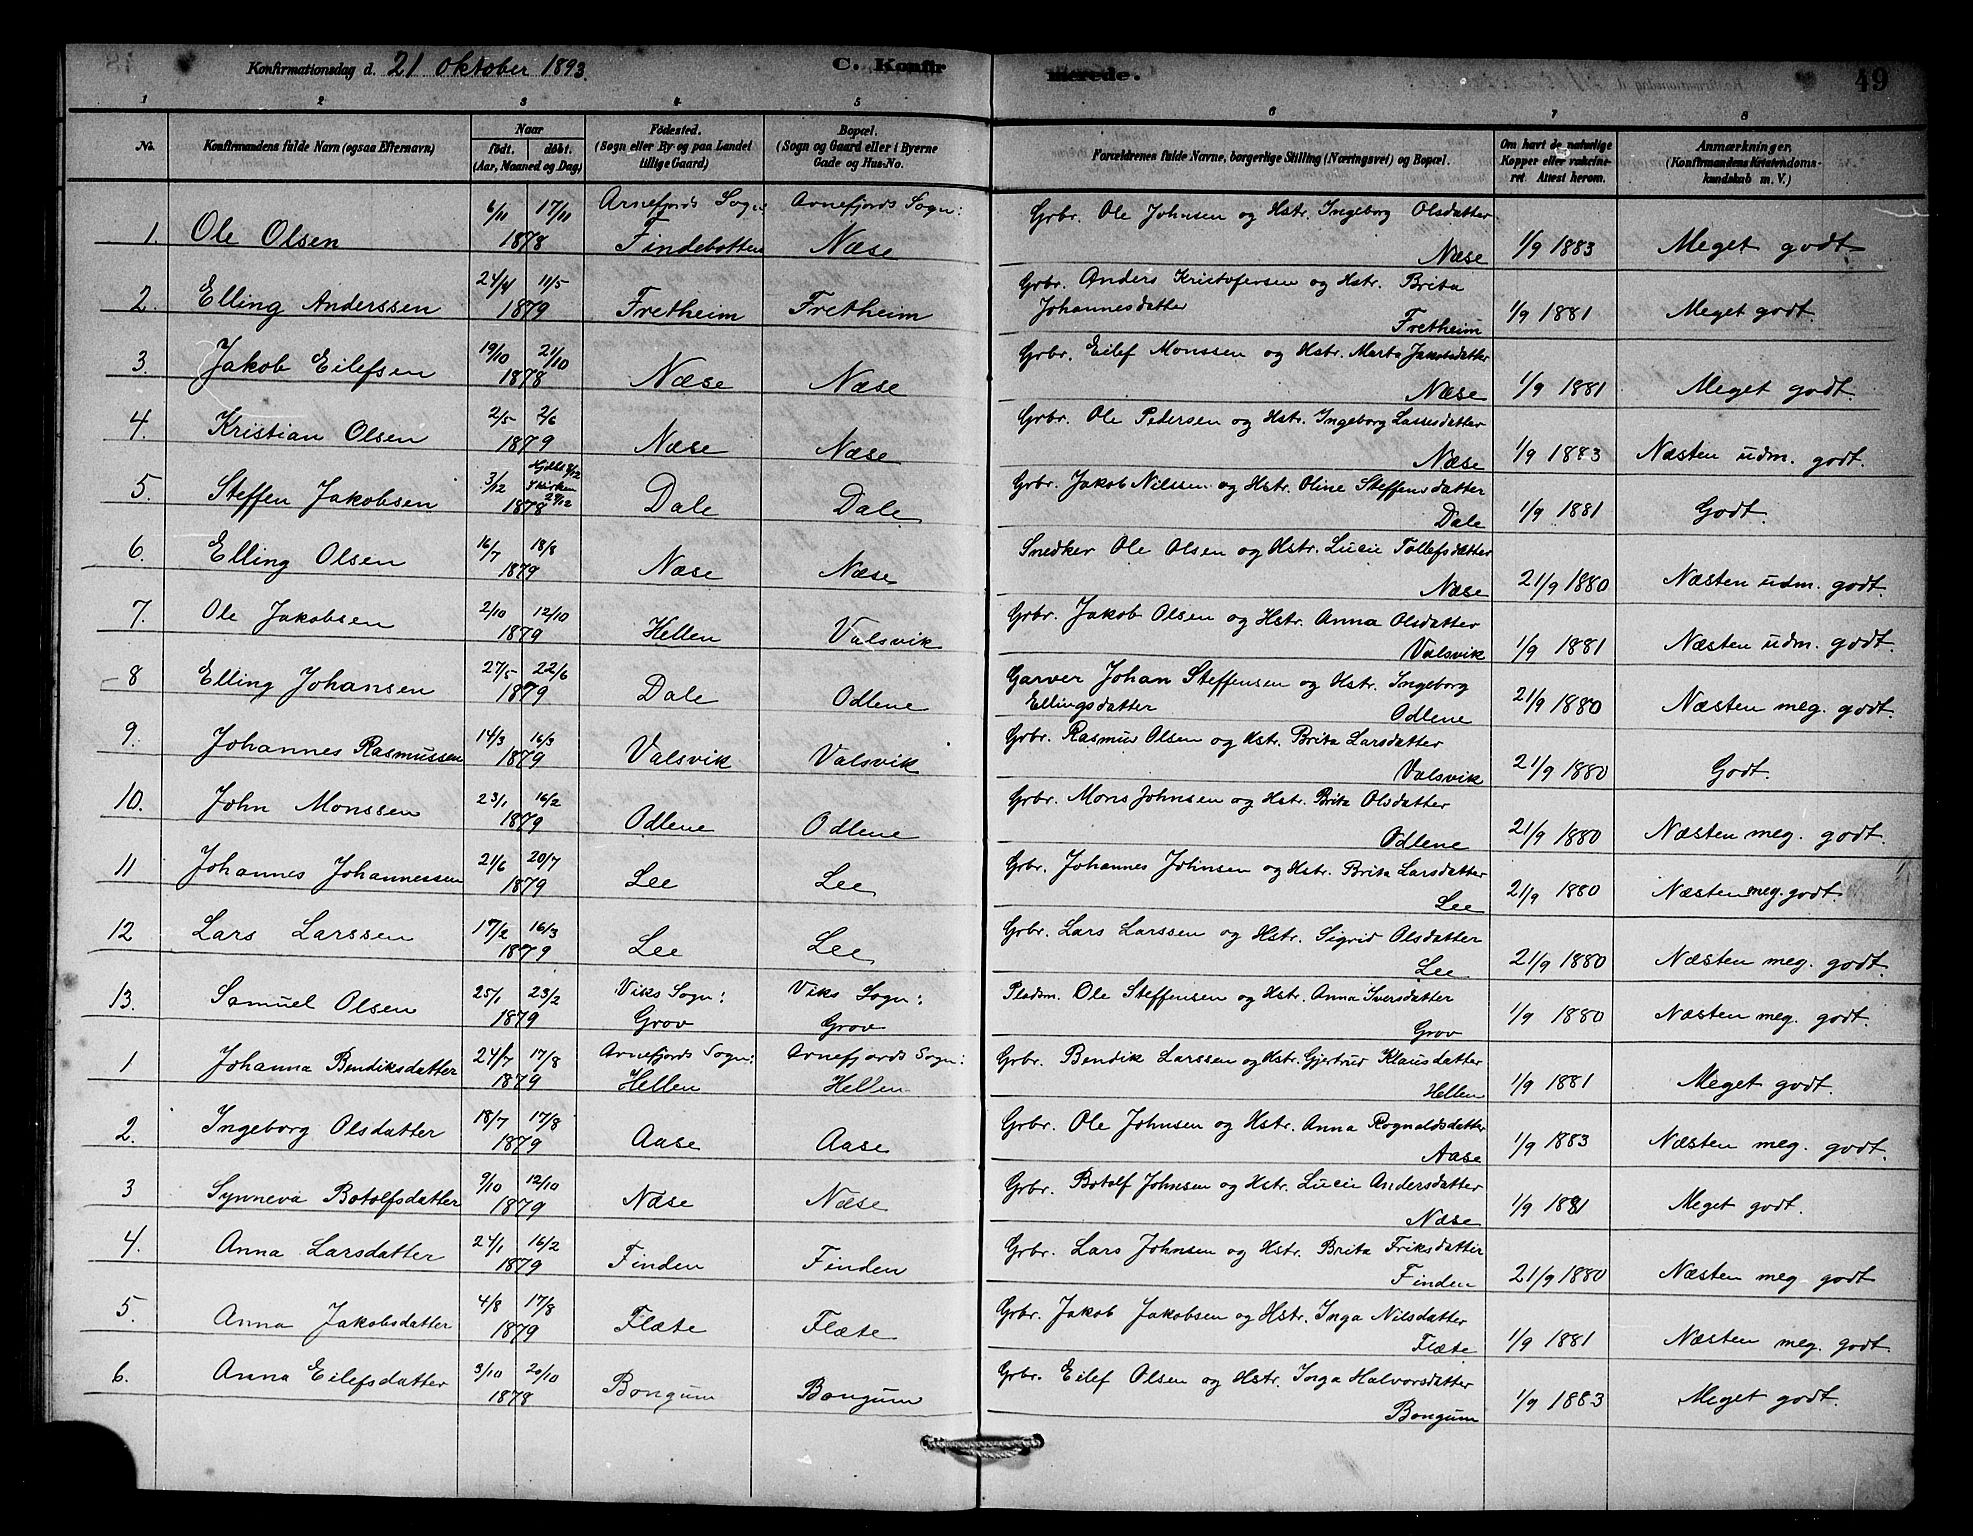 Konfirmationsdag d. 21 Oktober 1893. C. Konfirmerede. 49
1 2 3 4 5 6 7 8
No. Konfirmandens fulde Navn (ogsaa Efternavn). Naar født. døbt. (Aar, Maaned og Dag.) Födested. (Sogn eller By og paa Landet tillige Gaard) Bopæl. (Sogn og Gaard eller i Byerne Gade og Hus-No. Forældrenes fulde Navne, borgerlige Stilling (Næringsvei) og Bopæl. Om havt de naturlige Kopper eller vakcineret. Attest herom. Anmærkninger, (Konfirmandens Kristendomskundskab m. V.)
1. Ole Olsen 6/11 17/11 1878 Arnefjords Sogn Findebotten Arnefjords Sogn: Næse Grbr. Ole Johnsen og Hstr. Ingeborg Olsdatter Næse 1/9 1883 Meget godt.
2. Elling Anderssen 24/4 11/5 1879 Fretheim Fretheim Grbr. Anders Kristofersen og Hstr. Brita Johannesdatter Fretheim 1/9 1881 Meget godt.
3. Jakob Eilefsen 19/10 21/10 1878 Næse Næse Grbr. Eilef Monssen og Hstr. Marta Jakobsdatter Næse 1/9 1881 Meget godt.
4. Kristian Olsen 2/5 2/6 1879 Næse Næse Grbr. Ole Pedersen og Hstr. Ingeborg Lassesdatter Næse 1/9 1883 Næsten udm. godt.
5. Steffen Jakobsen 3/12 Hjdbt 8/12 I kirken 29/12 1878 Dale Dale Grbr. Jakob Nilssen og Hstr. Oline Steffensdatter Dale 1/9 1881 Godt.
6. Elling Olsen 16/7 18/8 1879 Næse Næse Snedker Ole Olsen og Hstr. Lucie Tollefsdatter Næse 21/9 1880 Næsten udm. godt.
7. Ole Jakobsen 2/10 12/10 1879 Hellen Valsvik Grbr. Jakob Olsen og Hstr. Anna Olsdatter Valsvik 1/9 1881 Næsten udm. godt.
8 Elling Johansen 27/5 22/6 1879 Dale Odlene Garver Johan Steffensen og Hstr. Ingeborg Ellingsdatter Odlene 21/9 1880 Næsten meg. godt.
9. Johannes Rasmussen 14/3 16/3 1879 Valsvik Valsvik Grbr. Rasmus Olsen og Hstr. Brita Larsdatter Valsvik 21/9 1880 Godt.
10. John Monssen 23/1 16/2 1879 Odlene Odlene Grbr. Mons Johnsen og Hstr. Brita Olsdatter Odlene 21/9 1880 Næsten meg. godt.
11 Johannes Johannessen 21/6 20/7 1879 Lee Lee Grbr. Johannes Johnsen og Hstr. Brita Larsdatter Lee 21/9 1880 Næsten meg. godt.
12 Lars Larssen 17/2 16/3 1879 Lee Lee Grbr. Lars Larssen og Hstr. Sigrid Olsdatter Lee 21/9 1880 Næsten meg. godt.
13. Samuel Olsen 25/1 23/2 1879 Viks Sogn: Grov Viks Sogn: Grov Pladsm. Ole Steffensen og Hstr. Anna Iversdatter Grov 1/9 1880 Næsten meg. godt.
1 Johanna Bendiksdatter 24/7 17/8 1879 Arnefjords Sogn: Hellen Arnefjords Sogn: Hellen Grbr. Bendik Larssen og Hstr. Gjertrud Klausdatter Hellen 1/9 1881 Meget godt.
2. Ingeborg Olsdatter 18/7 17/8 1879 Aase Aase Grbr. Ole Johnsen og Hstr. Anna Rognaldsdatter Aase 1/9 1883 Næsten meg. godt.
3 Synneva Botolfsdatter 9/10 12/10 1879 Næse Næse Grbr. Botolf Johnsen og Hstr. Lucie Andersdatter Næse 1/9 1881 Meget godt.
4. Anna Larsdatter 24/1 16/2 1879 Finden Finden Grbr. Lars Johnsen og Hstr. Brita Friksdatter Finden 21/9 1880 Næsten meg. godt
5. Anna Jakobsdatter 4/8 17/8 1879 Flæte Flæte Grbr. Jakob Jakobsen og Hstr. Inga Nilsdatter Flæte 1/9 1881 Næsten meg. godt.
6. Anna Eilefsdatter 3/10 20/10 1878 Bongum Bongum Grbr. Eilef Olsen og Hstr. Inga Halvorsdatter Bongum 1/9 1883 Meget godt.